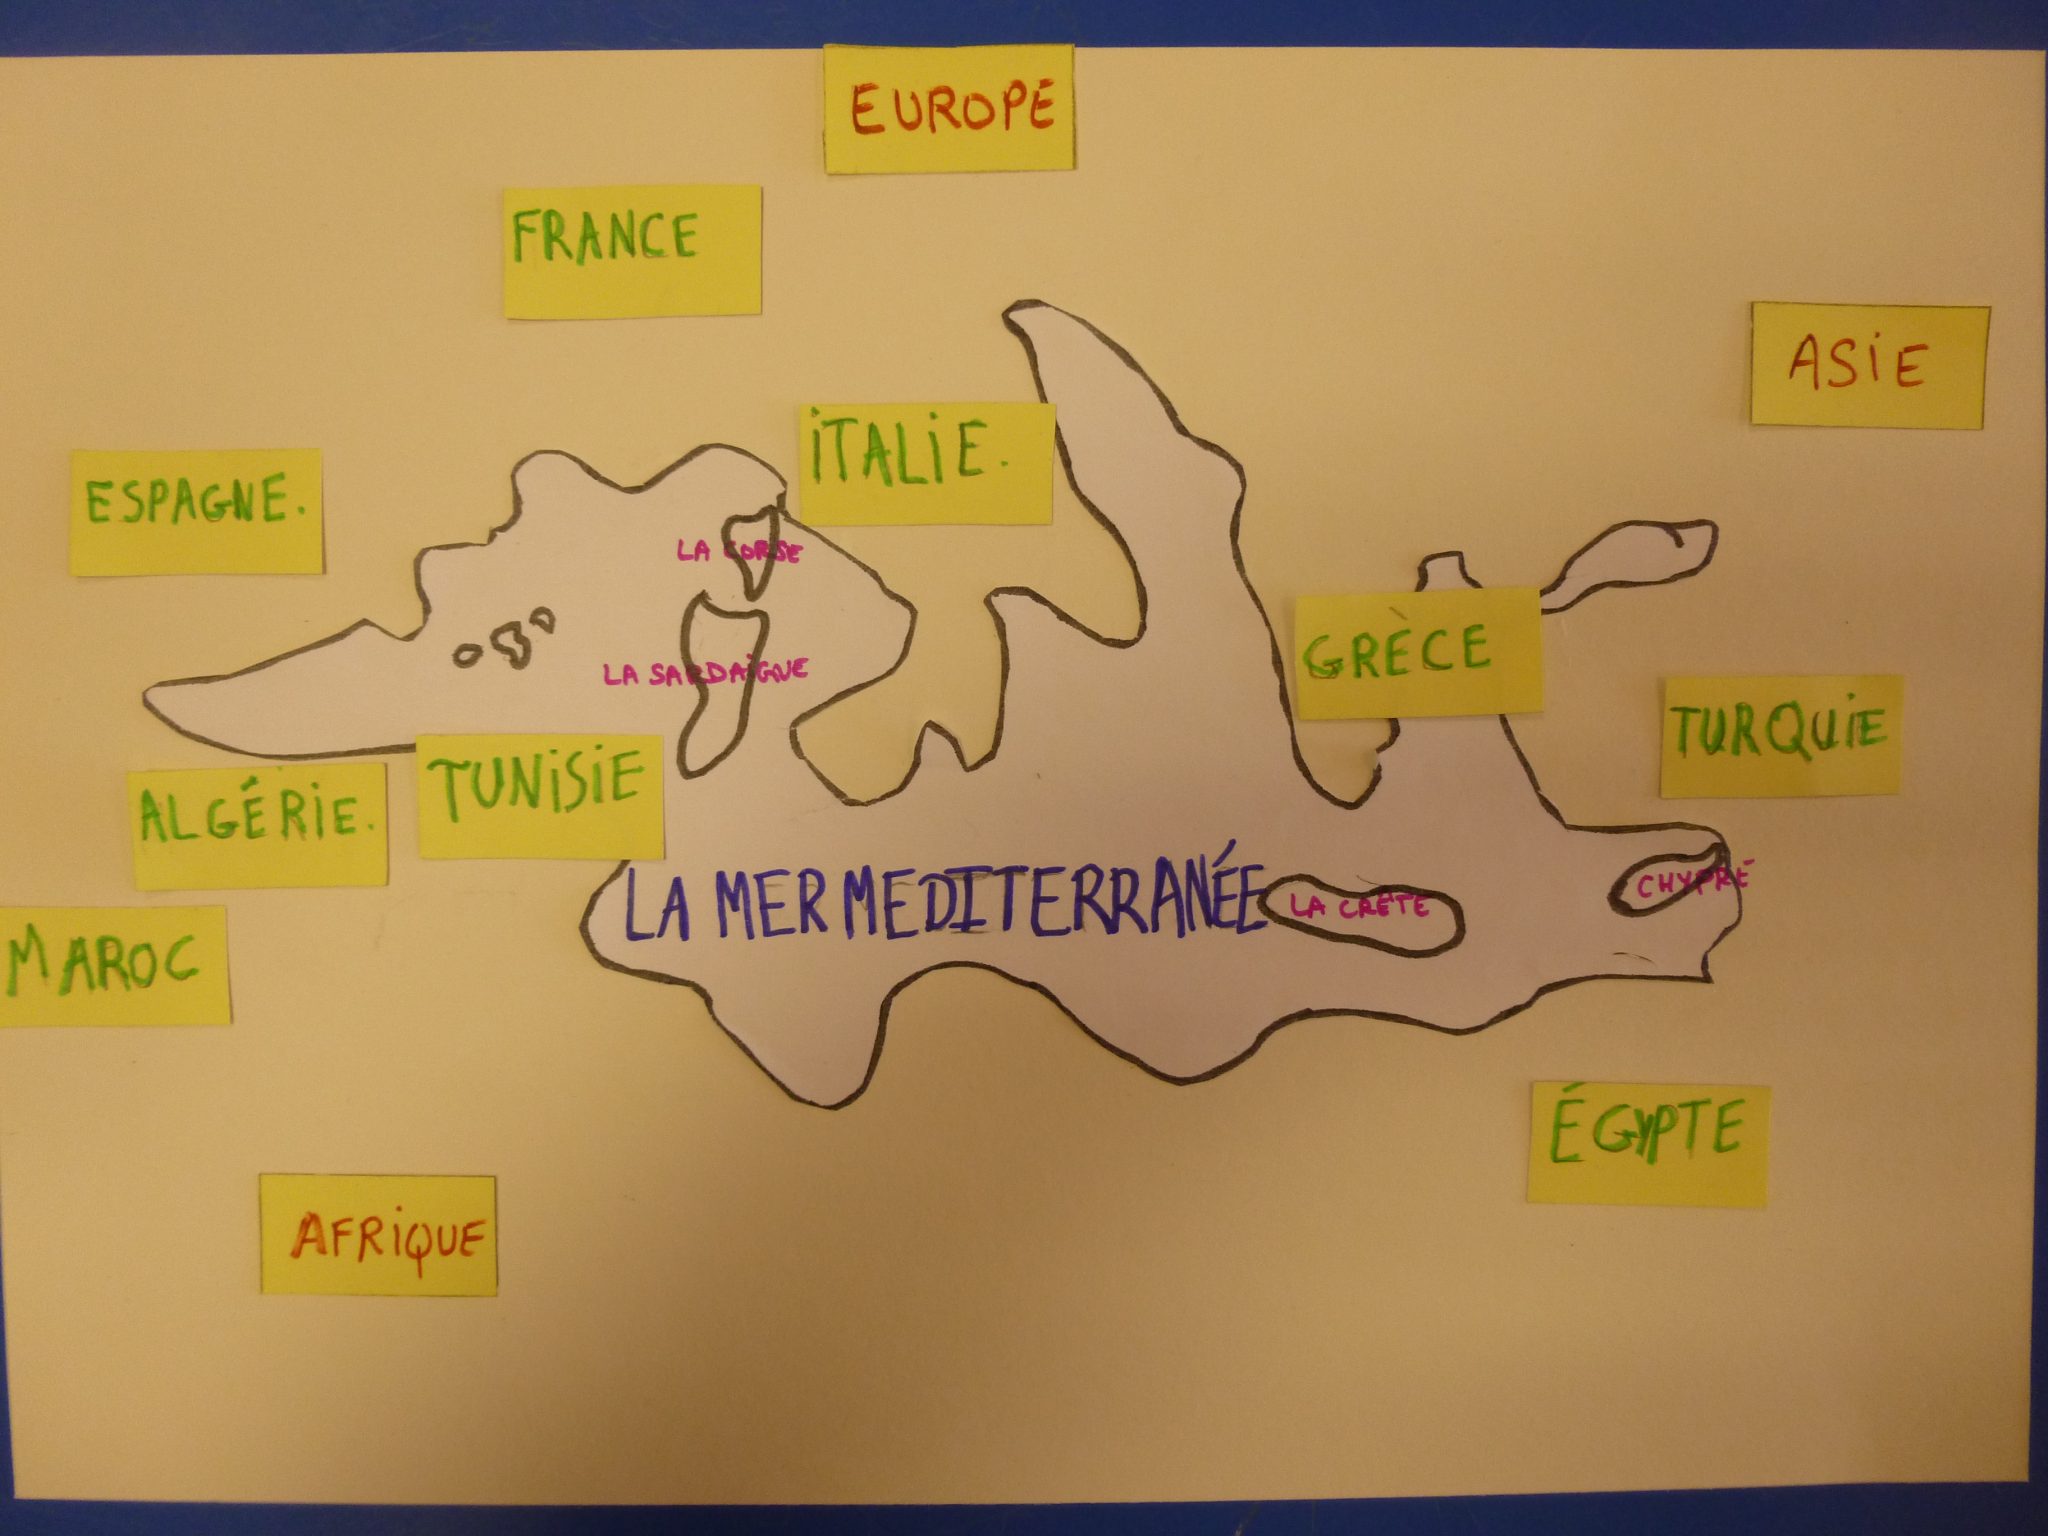 EUROPE
FRANCE
ASiE
iTALiE.
ESPAGNE.
LA CORSE
GRÈCE
LA SARDAiGNE
TURQUiE
TUNiSiE
ALGÉRiE.
LA MER MEDITERRANÉE
LA CRÊTE
CHYPRE
MAROC
ÉGYPTE
AFRiQUE